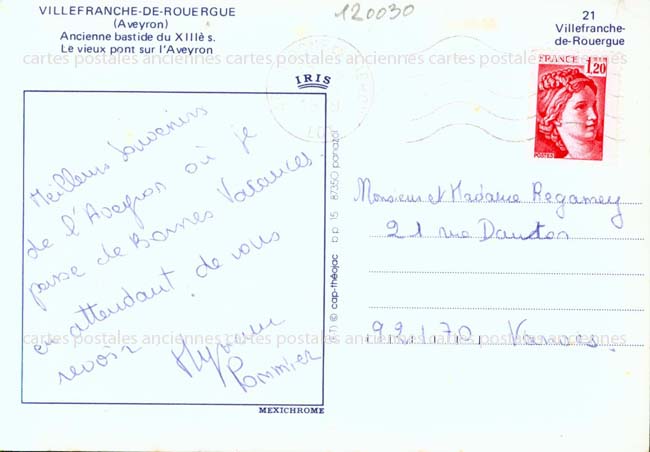 VILLEFRANCHE-DE-ROUERGUE
(Aveyron)
Ancienne bastide du XIIIè s.
Le vieux pont sur l'Aveyron
120030
21
Villefranche-
de-Rouergue
FRANCE 1,20
POSTES
cartes postales anciennes cartes postales anciennes cartes postales anciennes
IRIS
Meilleurs Souvenirs
de l'Aveyron où je
passe de Bonnes Vacances
en attendant de vous
revoir
Pommier
MEXICHROME
cap-théojac b.p. 15 87350 panazol
Monsieur et Madame Regamey
21 rue Danton
92170 Vanves
cartes postales anciennes cartes postales anciennes cartes postales anciennes